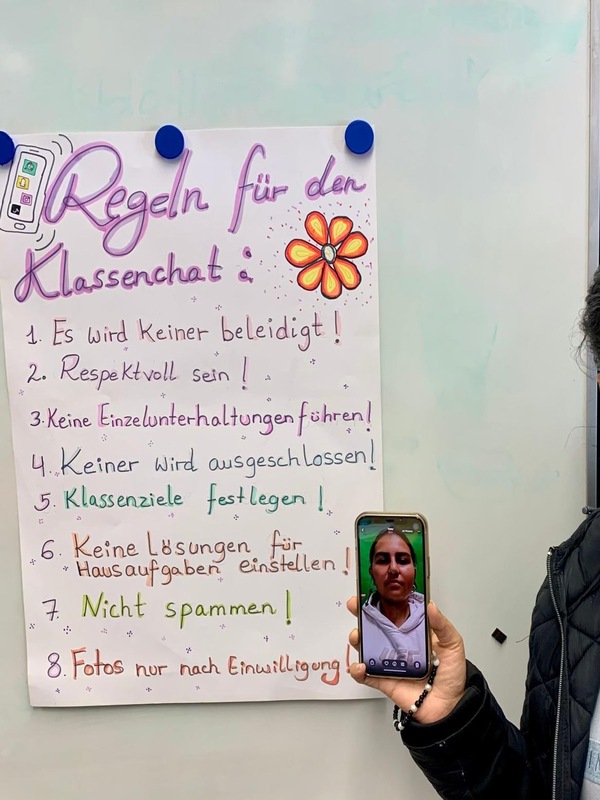 Regeln für den
Klassenchat:
1. Es wird Keiner beleidigt!
2. Respektvoll sein!
3. Keine Einzelunterhaltungen führen!
4. Keiner wird ausgeschlossen!
5. Klassenziele festlegen!
6. Keine Lösungen für
Hausaufgaben einstellen!
7. Nicht spammen!
8. Fotos nur nach Einwilligung!